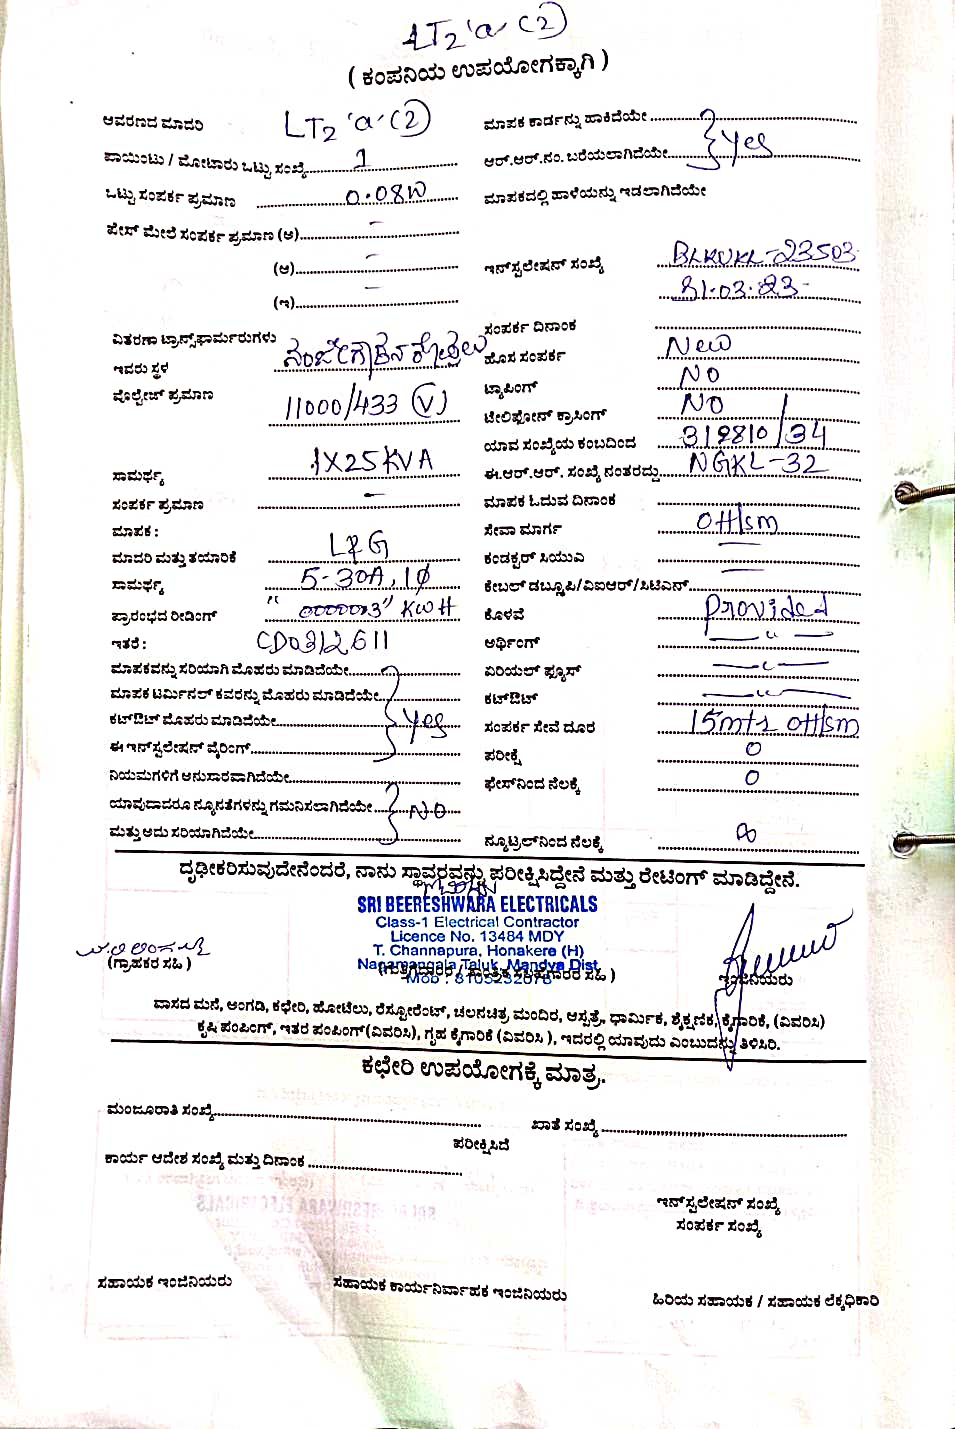 LT2 'a' (2)
( ಕಂಪನಿಯ ಉಪಯೋಗಕ್ಕಾಗಿ )
ಆವರಣದ ಮಾದರಿ LT2 'a' (2)
ಪಾಯಿಂಟು / ಮೋಟಾರು ಒಟ್ಟು ಸಂಖ್ಯೆ 1
ಒಟ್ಟು ಸಂಪರ್ಕ ಪ್ರಮಾಣ 0.08W
ಫೇಸ್ ಮೇಲೆ ಸಂಪರ್ಕ ಪ್ರಮಾಣ (ಅ) –
(ಆ) –
(ಇ) –
ವಿತರಣಾ ಟ್ರಾನ್ಸ್‌ಫಾರ್ಮರುಗಳು
ಇವರು ಸ್ಥಳ
ವೋಲ್ಟೇಜ್ ಪ್ರಮಾಣ 11000/433 (V)
ಸಾಮರ್ಥ್ಯ 1X25KVA
ಸಂಪರ್ಕ ಪ್ರಮಾಣ –
ಮಾಪಕ :
ಮಾದರಿ ಮತ್ತು ತಯಾರಿಕೆ L&G
ಸಾಮರ್ಥ್ಯ 5-30A, 1ϕ
ಪ್ರಾರಂಭದ ರೀಡಿಂಗ್ "0000003" KWH
ಇತರೆ : CD0312611
ಮಾಪಕವನ್ನು ಸರಿಯಾಗಿ ಮೊಹರು ಮಾಡಿದೆಯೇ
ಮಾಪಕ ಟರ್ಮಿನಲ್ ಕವರನ್ನು ಮೊಹರು ಮಾಡಿದೆಯೇ
ಕಟ್‌ಔಟ್ ಮೊಹರು ಮಾಡಿದೆಯೇ Yes
ಈ ಇನ್‌ಸ್ಟಲೇಷನ್ ವೈರಿಂಗ್
ನಿಯಮಗಳಿಗೆ ಅನುಸಾರವಾಗಿದೆಯೇ
ಯಾವುದಾದರೂ ನ್ಯೂನತೆಗಳನ್ನು ಗಮನಿಸಲಾಗಿದೆಯೇ NO
ಮತ್ತು ಅದು ಸರಿಯಾಗಿದೆಯೇ
ಮಾಪಕ ಕಾರ್ಡನ್ನು ಹಾಕಿದೆಯೇ
ಆರ್.ಆರ್.ನಂ. ಬರೆಯಲಾಗಿದೆಯೇ Yes
ಮಾಪಕದಲ್ಲಿ ಹಾಳೆಯನ್ನು ಇಡಲಾಗಿದೆಯೇ
ಇನ್‌ಸ್ಟಲೇಷನ್ ಸಂಖ್ಯೆ BLKUKL-23503
31.03.23
ಸಂಪರ್ಕ ದಿನಾಂಕ
ಹೊಸ ಸಂಪರ್ಕ New
ಟ್ಯಾಪಿಂಗ್ NO
ಟೆಲಿಫೋನ್ ಕ್ರಾಸಿಂಗ್ NO
ಯಾವ ಸಂಖ್ಯೆಯ ಕಂಬದಿಂದ 312810/34
ಈ.ಆರ್.ಆರ್. ಸಂಖ್ಯೆ ನಂತರದ್ದು NGKL-32
ಮಾಪಕ ಓದುವ ದಿನಾಂಕ
ಸೇವಾ ಮಾರ್ಗ OH/sm
ಕಂಡಕ್ಟರ್ ಸಿಯುಎ –
ಕೇಬಲ್ ಡಬ್ಲ್ಯೂಪಿ/ವಿಐಆರ್/ಸಿಟಿಎಸ್ –
ಕೊಳವೆ Provided
ಅರ್ಥಿಂಗ್ — " —
ಏರಿಯಲ್ ಫ್ಯೂಸ್ — " —
ಕಟ್‌ಔಟ್ — " —
ಸಂಪರ್ಕ ಸೇವೆ ದೂರ 15mts OH/sm
ಪರೀಕ್ಷೆ 0
ಫೇಸ್‌ನಿಂದ ನೆಲಕ್ಕೆ 0
ನ್ಯೂಟ್ರಲ್‌ನಿಂದ ನೆಲಕ್ಕೆ ∞
ದೃಢೀಕರಿಸುವುದೇನೆಂದರೆ, ನಾನು ಸ್ಥಾವರವನ್ನು ಪರೀಕ್ಷಿಸಿದ್ದೇನೆ ಮತ್ತು ರೇಟಿಂಗ್ ಮಾಡಿದ್ದೇನೆ.
SRI BEERESHWARA ELECTRICALS
Class-1 Electrical Contractor
Licence No. 13484 MDY
T. Channapura, Honakere (H)
Nagamangala Taluk, Mandya Dist.
Mob : 8105252678
(ಗ್ರಾಹಕರ ಸಹಿ )
ಇಂಜಿನಿಯರು
ವಾಸದ ಮನೆ, ಅಂಗಡಿ, ಕಛೇರಿ, ಹೋಟೆಲು, ರೆಸ್ಟೋರೆಂಟ್, ಚಲನಚಿತ್ರ ಮಂದಿರ, ಆಸ್ಪತ್ರೆ, ಧಾರ್ಮಿಕ, ಶೈಕ್ಷಣಿಕ, ಕೈಗಾರಿಕೆ, (ವಿವರಿಸಿ)
ಕೃಷಿ ಪಂಪಿಂಗ್, ಇತರ ಪಂಪಿಂಗ್(ವಿವರಿಸಿ), ಗೃಹ ಕೈಗಾರಿಕೆ (ವಿವರಿಸಿ ), ಇದರಲ್ಲಿ ಯಾವುದು ಎಂಬುದನ್ನು ತಿಳಿಸಿರಿ.
ಕಛೇರಿ ಉಪಯೋಗಕ್ಕೆ ಮಾತ್ರ.
ಮಂಜೂರಾತಿ ಸಂಖ್ಯೆ
ಖಾತೆ ಸಂಖ್ಯೆ
ಪರೀಕ್ಷಿಸಿದೆ
ಕಾರ್ಯ ಆದೇಶ ಸಂಖ್ಯೆ ಮತ್ತು ದಿನಾಂಕ
ಇನ್‌ಸ್ಟಲೇಷನ್ ಸಂಖ್ಯೆ
ಸಂಪರ್ಕ ಸಂಖ್ಯೆ
ಸಹಾಯಕ ಇಂಜಿನಿಯರು
ಸಹಾಯಕ ಕಾರ್ಯನಿರ್ವಾಹಕ ಇಂಜಿನಿಯರು
ಹಿರಿಯ ಸಹಾಯಕ / ಸಹಾಯಕ ಲೆಕ್ಕಧಿಕಾರಿ